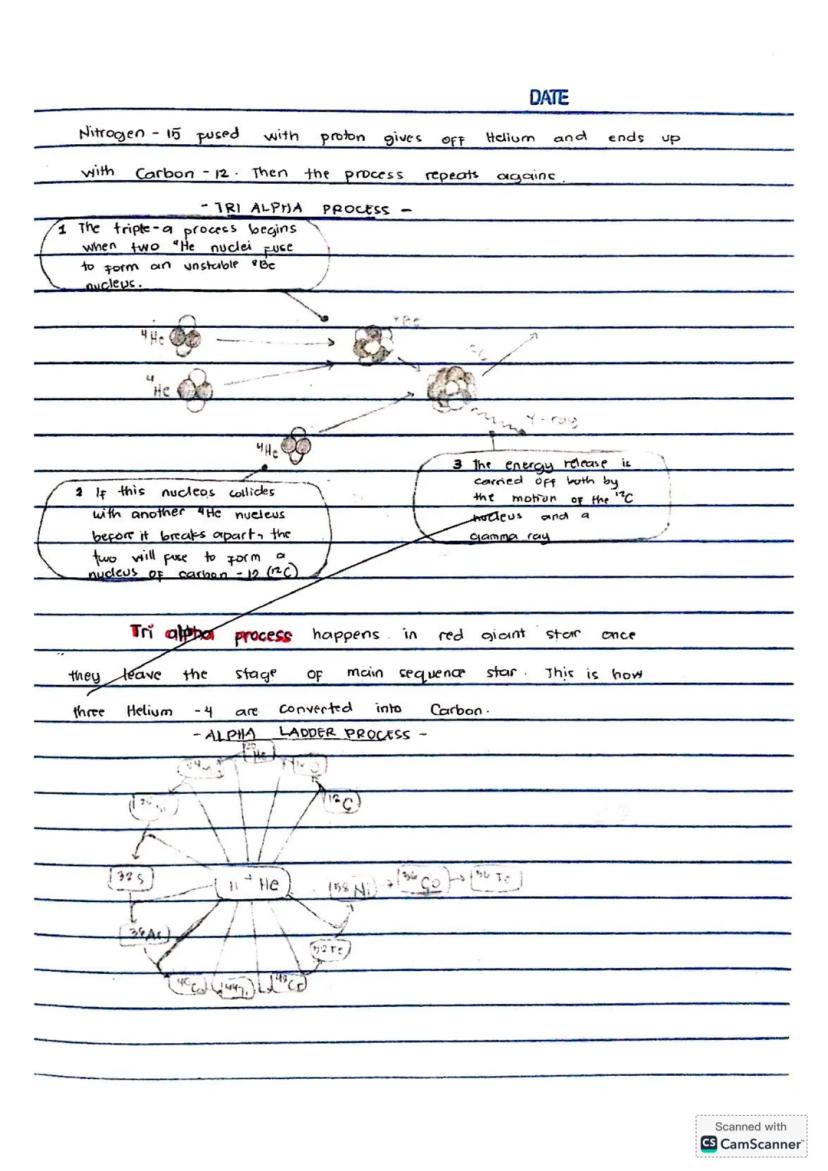 DATE
Nitrogen - 15 fused with proton gives off Helium and ends up
with Carbon - 12. Then the process repeats againc.
- TRI ALPHA PROCESS -
1 The triple-a process begins
when two ⁴He nuclei fuse
to form an unstable ⁸Be
nucleus.
⁴He
⁸Be
⁴He
γ-ray
⁴He
3 the energy release is
carried off both by
the motion of the ¹²C
nucleus and a
Gamma ray
2 If this nucleos collides
with another ⁴He nucleus
before it breaks apart, the
two will fuse to form a
nucleus of carbon - 12 (¹²C)
Tri alpha process happens in red giant star once
they leave the stage of main sequence star. This is how
three Helium - 4 are converted into Carbon.
- ALPHA LADDER PROCESS -
¹²C
³²S
He
⁵⁶Ni
⁵²Fe
Scanned with
CS CamScanner